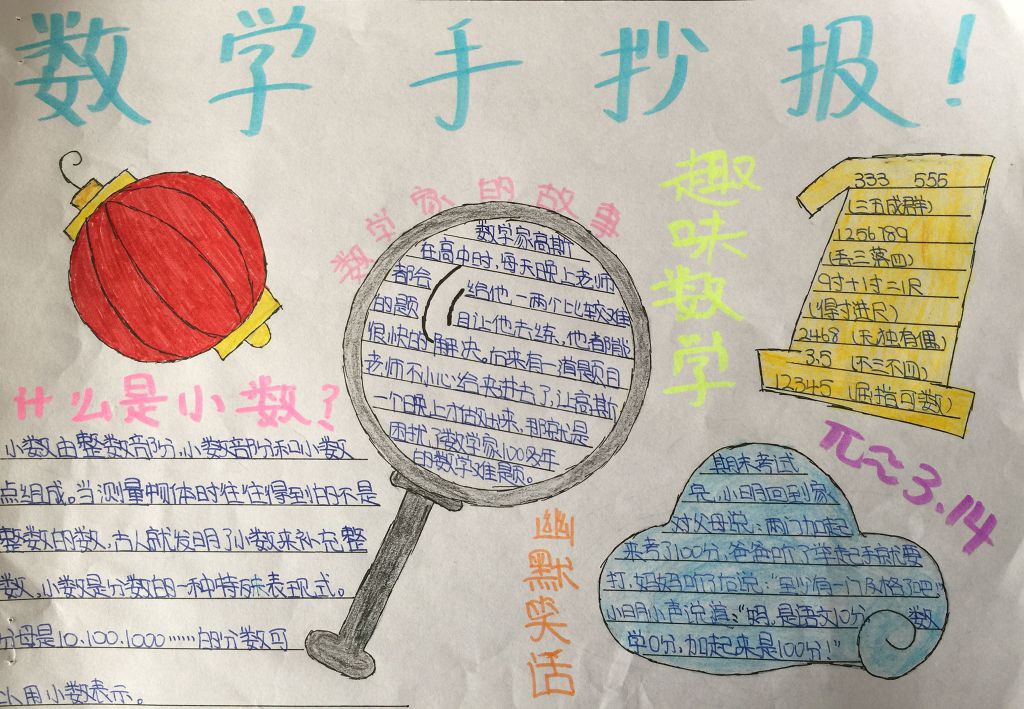 数学手抄报!
数学家的故事
数学家高斯
在高中时,每天晚上老师
都会给他一两个比较难
的题目让他去练,他都能
很快的解决。后来有一道题目
老师不小心给夹进去了,让高斯
一个晚上才做出来,那就是
困扰了数学家100多年
的数学难题。
趣味数学
333 555
(三五成群)
1256789
(丢三落四)
9寸+1寸=1尺
(得寸进尺)
2468 (无独有偶)
3.5 (不三不四)
12345 (屈指可数)
什么是小数?
小数由整数部分,小数部分和小数
点组成。当测量物体时往往得到的不是
整数的数,古人就发明了小数来补充整
数,小数是分数的一种特殊表现式。
分母是10.100.1000……的分数可
以用小数表示。
π≈3.14
幽默笑话
期末考试
完,小明回到家
对父母说:两门加起
来考了100分,爸爸听了举起手就要
打,妈妈听了后说:“至少有一门及格了吧;”
小明小声说道:“妈,是语文10分 数
学0分,加起来是100分!”